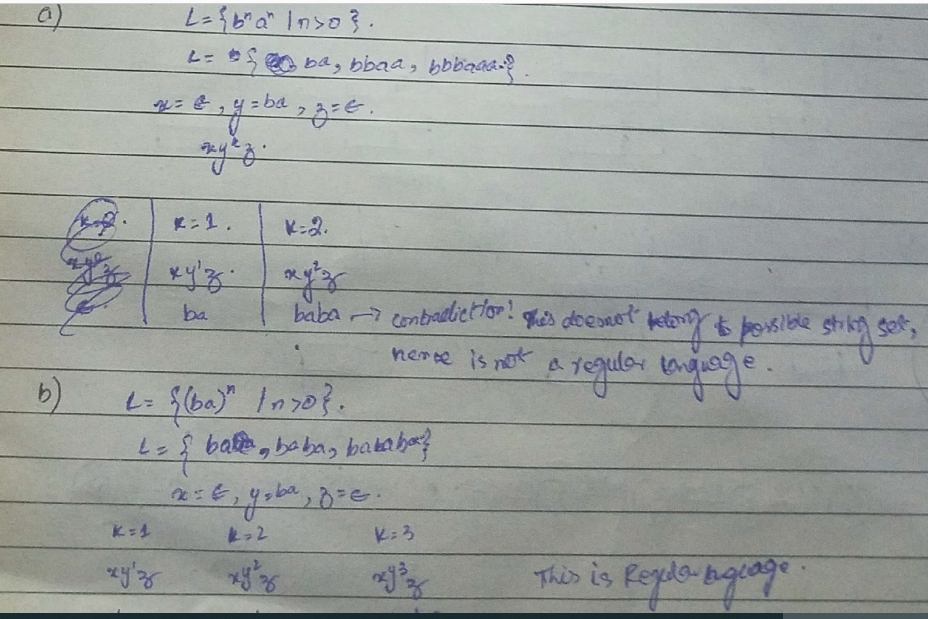 a)
L = {bⁿaⁿ | n>0}.
L = { ba, bbaa, bbbaaa..}.
x = ε, y = ba, z = ε.
xyᵏz.
K=1. K=2.
xy¹z. xy²z
ba baba → contradiction! This doesnot belong to possible string set,
hence is not a regular language.
b) L = {(ba)ⁿ | n>0}.
L = { ba, baba, bababa..}
x = ε, y = ba, z = ε.
K=1 K=2 K=3
xy¹z xy²z xy³z This is Regular language.